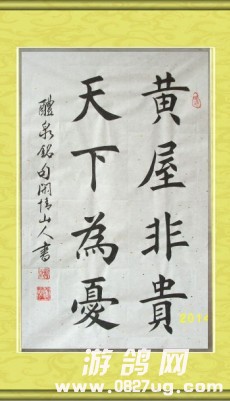 黄屋非貴
天下為憂
醴泉銘句閑情山人書
2014
游鸽网
www.0827ug.com